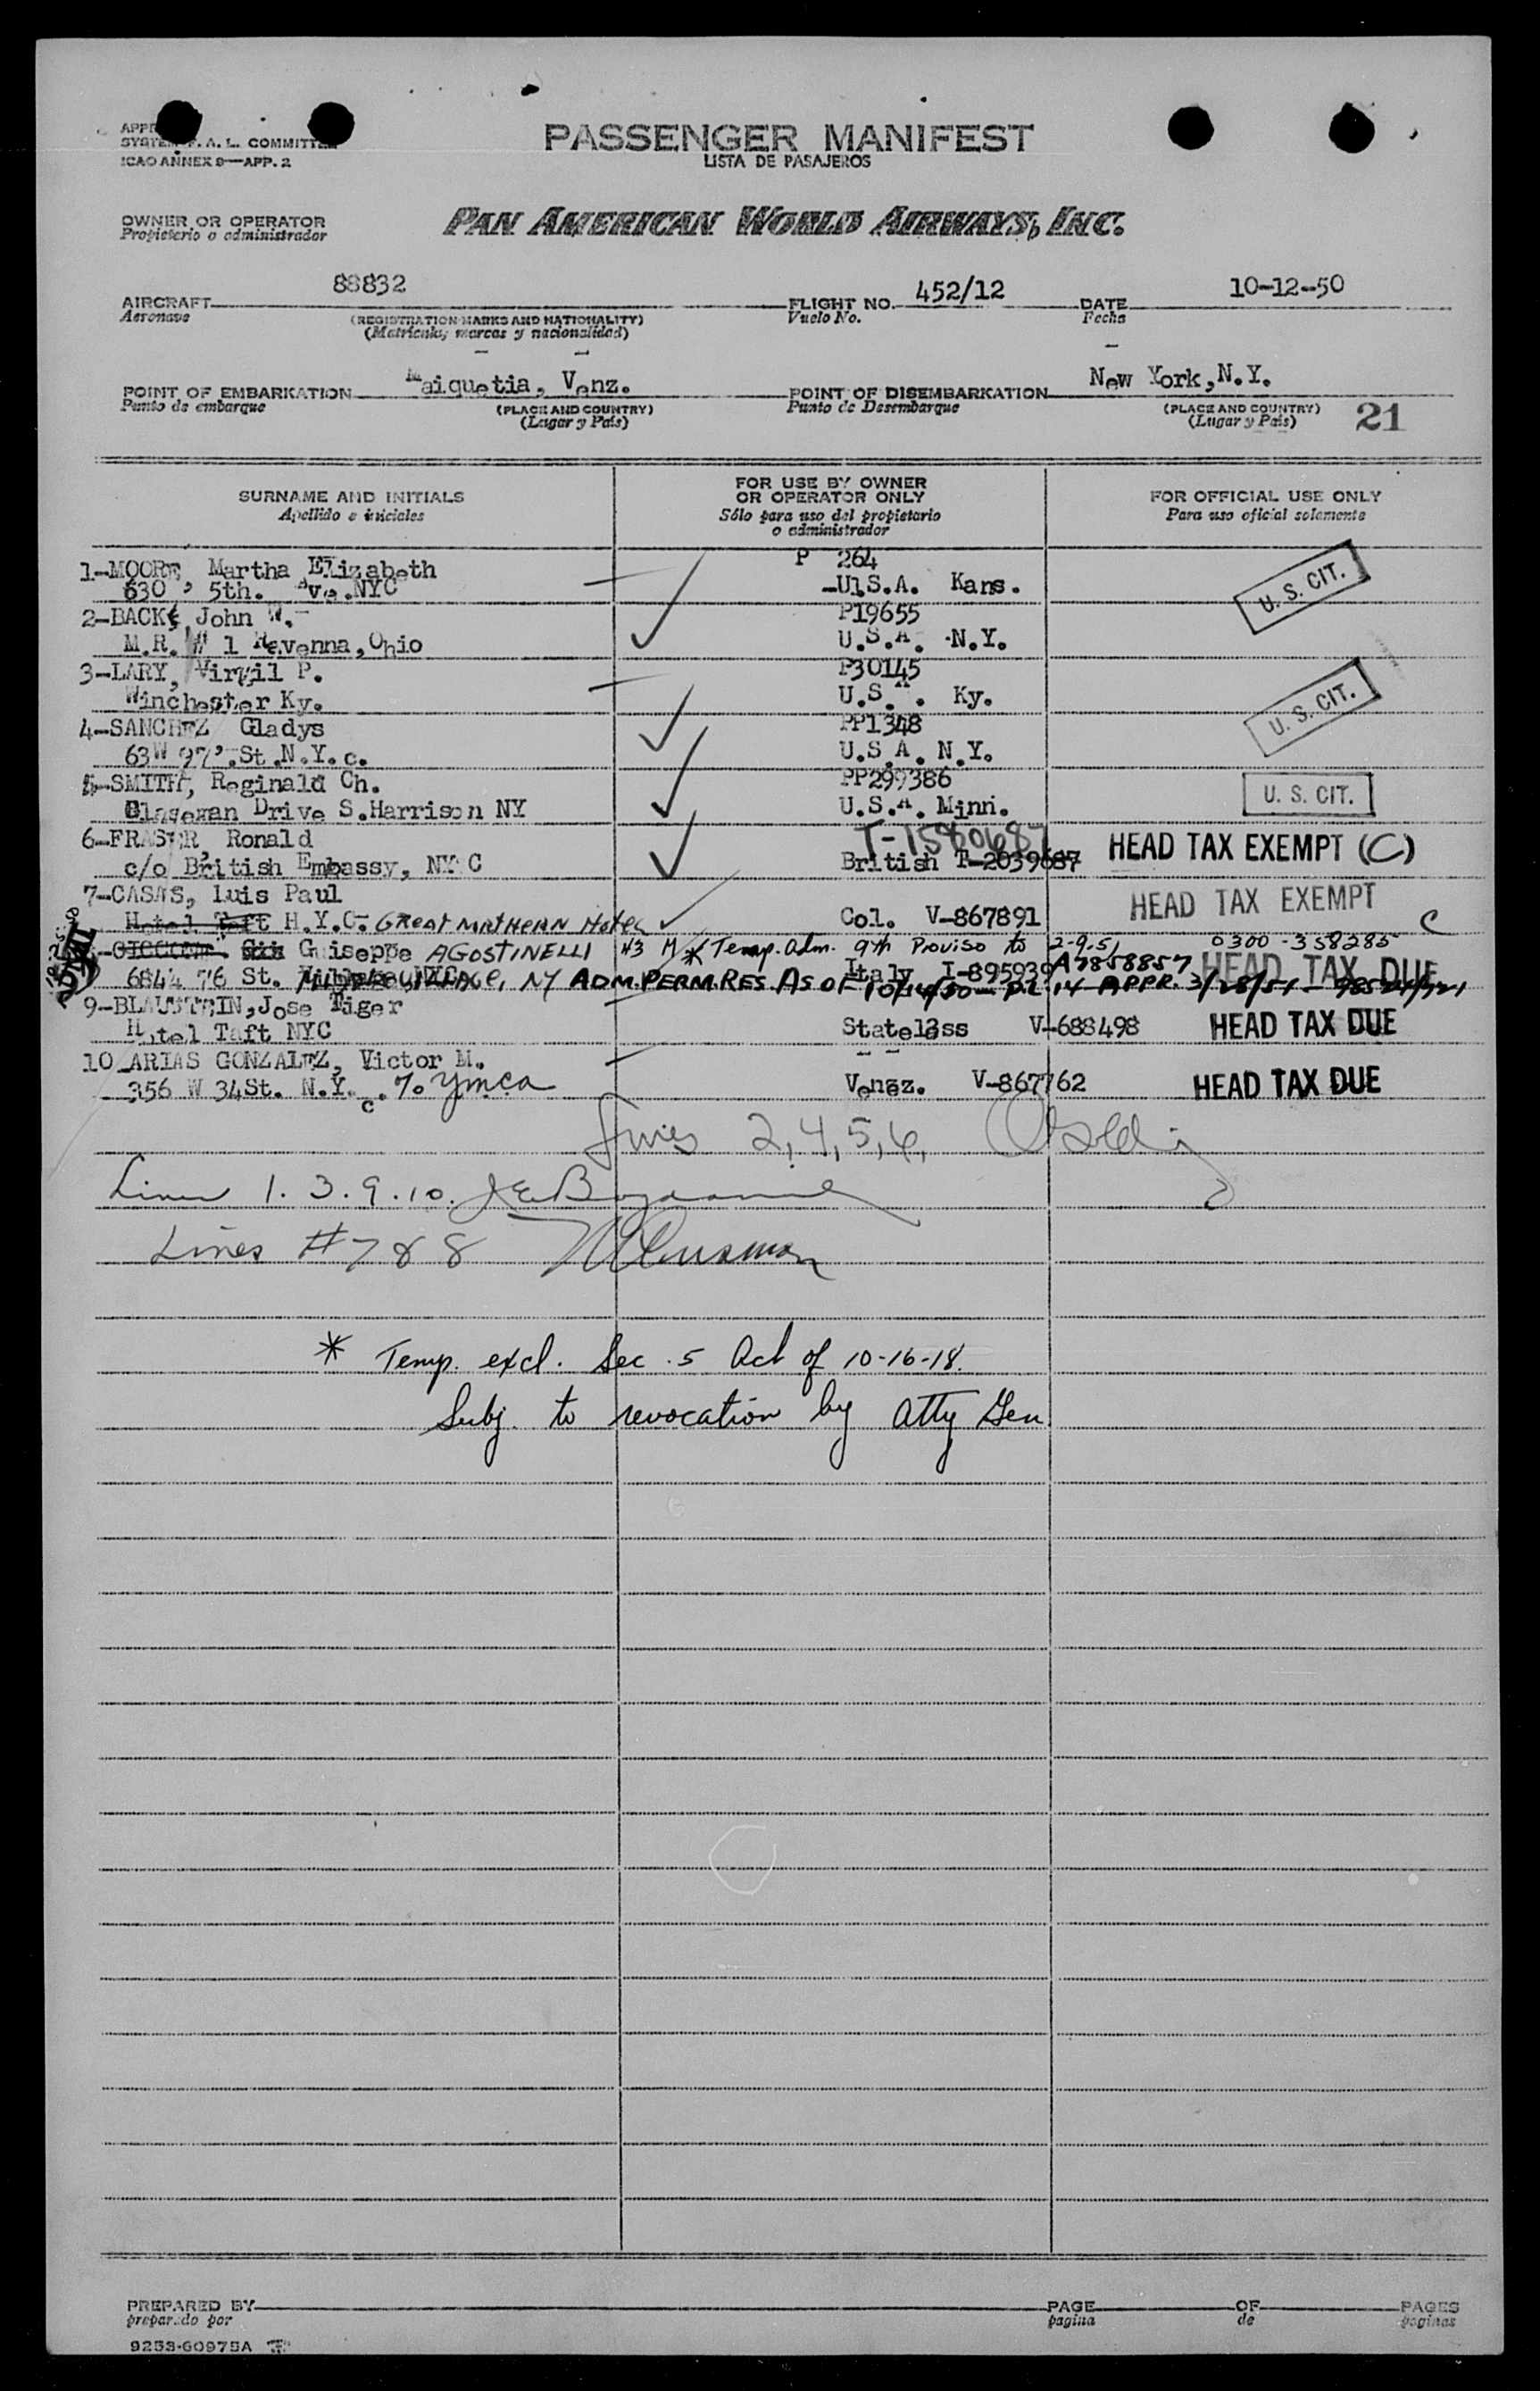 SYSTEM F. A. L. COMMITTEE
ICAO ANNEX 9—APP. 2
PASSENGER MANIFEST
LISTA DE PASAJEROS
OWNER OR OPERATOR
Propietario o administrador
PAN AMERICAN WORLD AIRWAYS, INC.
AIRCRAFT 88832 FLIGHT NO. 452/12 DATE 10-12-50
Aeronave (REGISTRATION MARKS AND NATIONALITY) Vuelo No. Fecha
(Matricula, marcas y nacionalidad)
POINT OF EMBARKATION Maiquetia, Venz. POINT OF DISEMBARKATION New York, N.Y.
Punto de embarque (PLACE AND COUNTRY) Punto de Desembarque (PLACE AND COUNTRY)
(Lugar y País) (Lugar y País) 21
SURNAME AND INITIALS
Apellido e iniciales
FOR USE BY OWNER
OR OPERATOR ONLY
Sólo para uso del propietario
o administrador
FOR OFFICIAL USE ONLY
Para uso oficial solamente
1-MOORE, Martha Elizabeth P 264
630 5th. Ave.NYC U.S.A. Kans. U. S. CIT.
2-BACKE, John W. P19655
M.R. # 1 Ravenna, Ohio U.S.A. N.Y.
3-LARY, Virgil P. P30145
Winchester Ky. U.S.A. Ky. U. S. CIT.
4-SANCHEZ Gladys PP1348
63W 97 St.N.Y.c. U.S.A. N.Y.
5-SMITH, Reginald Ch. PP299386
Drive S.Harrison NY U.S.A. Minn. U. S. CIT.
6-FRASER, Ronald T-1580687
c/o British Embassy, NYC British T-2039687 HEAD TAX EXEMPT (C)
7-CASAS, Luis Paul HEAD TAX EXEMPT
Hotel Taft N.Y.C. GREAT NORTHERN HOTEL Col. V-867891 C
8- Guiseppe AGOSTINELLI #3 M * Temp. adm. 9th Proviso to 2-9-51 0300-358285
ADMIT
6844 76 St. NY Italy I-895939 A7858857 HEAD TAX DUE
ADM. PERM. RES. AS OF 10/14/50 - P.L. 14 - APPR. 3/28/51
9-BLAUSTEIN, Jose Tiger
Hotel Taft NYC Stateless V-688498 HEAD TAX DUE
10 ARIAS GONZALEZ, Victor M.
356 W 34St. N.Y.c. % YMCA Venez. V-867762 HEAD TAX DUE
Lines 2,4,5,6,
Lines 1. 3. 9. 10.
Lines #7 & 8
* Temp. excl. Sec. 5 Act of 10-16-18.
Subj. to revocation by Atty Gen.
PREPARED BY PAGE OF PAGES
preparado por pagina de paginas
9253-60975A